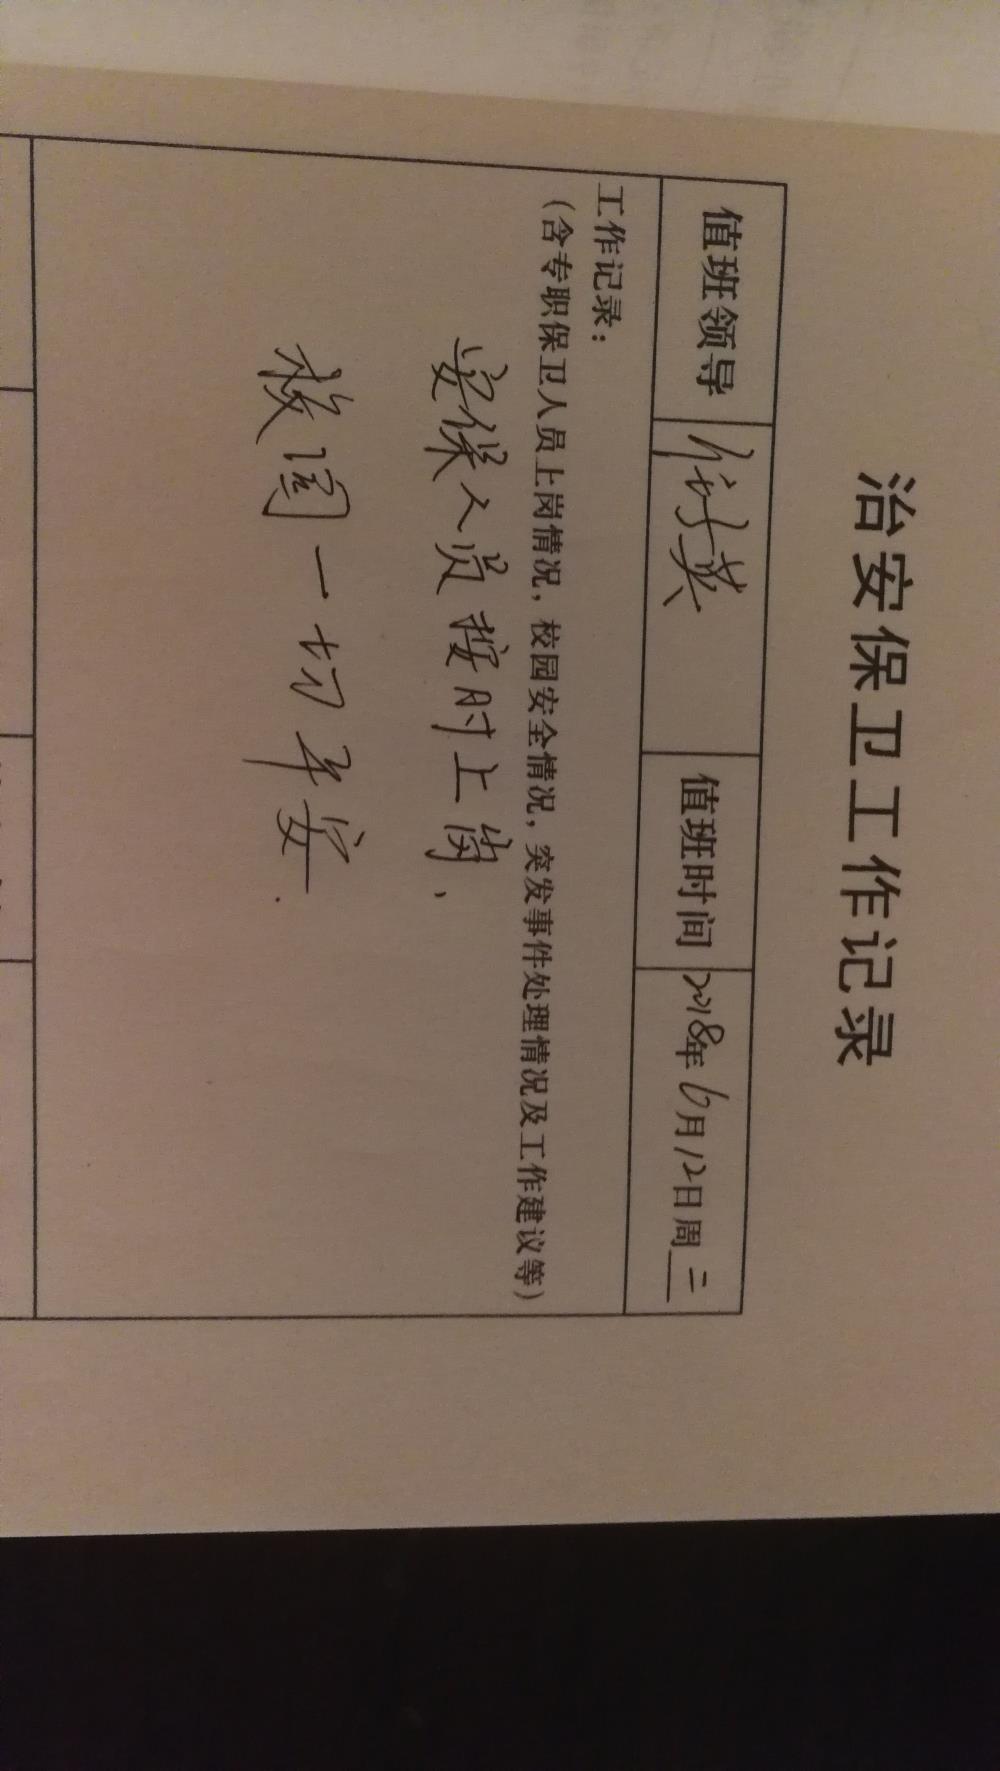 治安保卫工作记录
值班领导 英 值班时间 2018年6月12日周二
工作记录：
（含专职保卫人员上岗情况，校园安全情况，突发事件处理情况及工作建议等）
安保人员按时上岗、
校园一切平安.